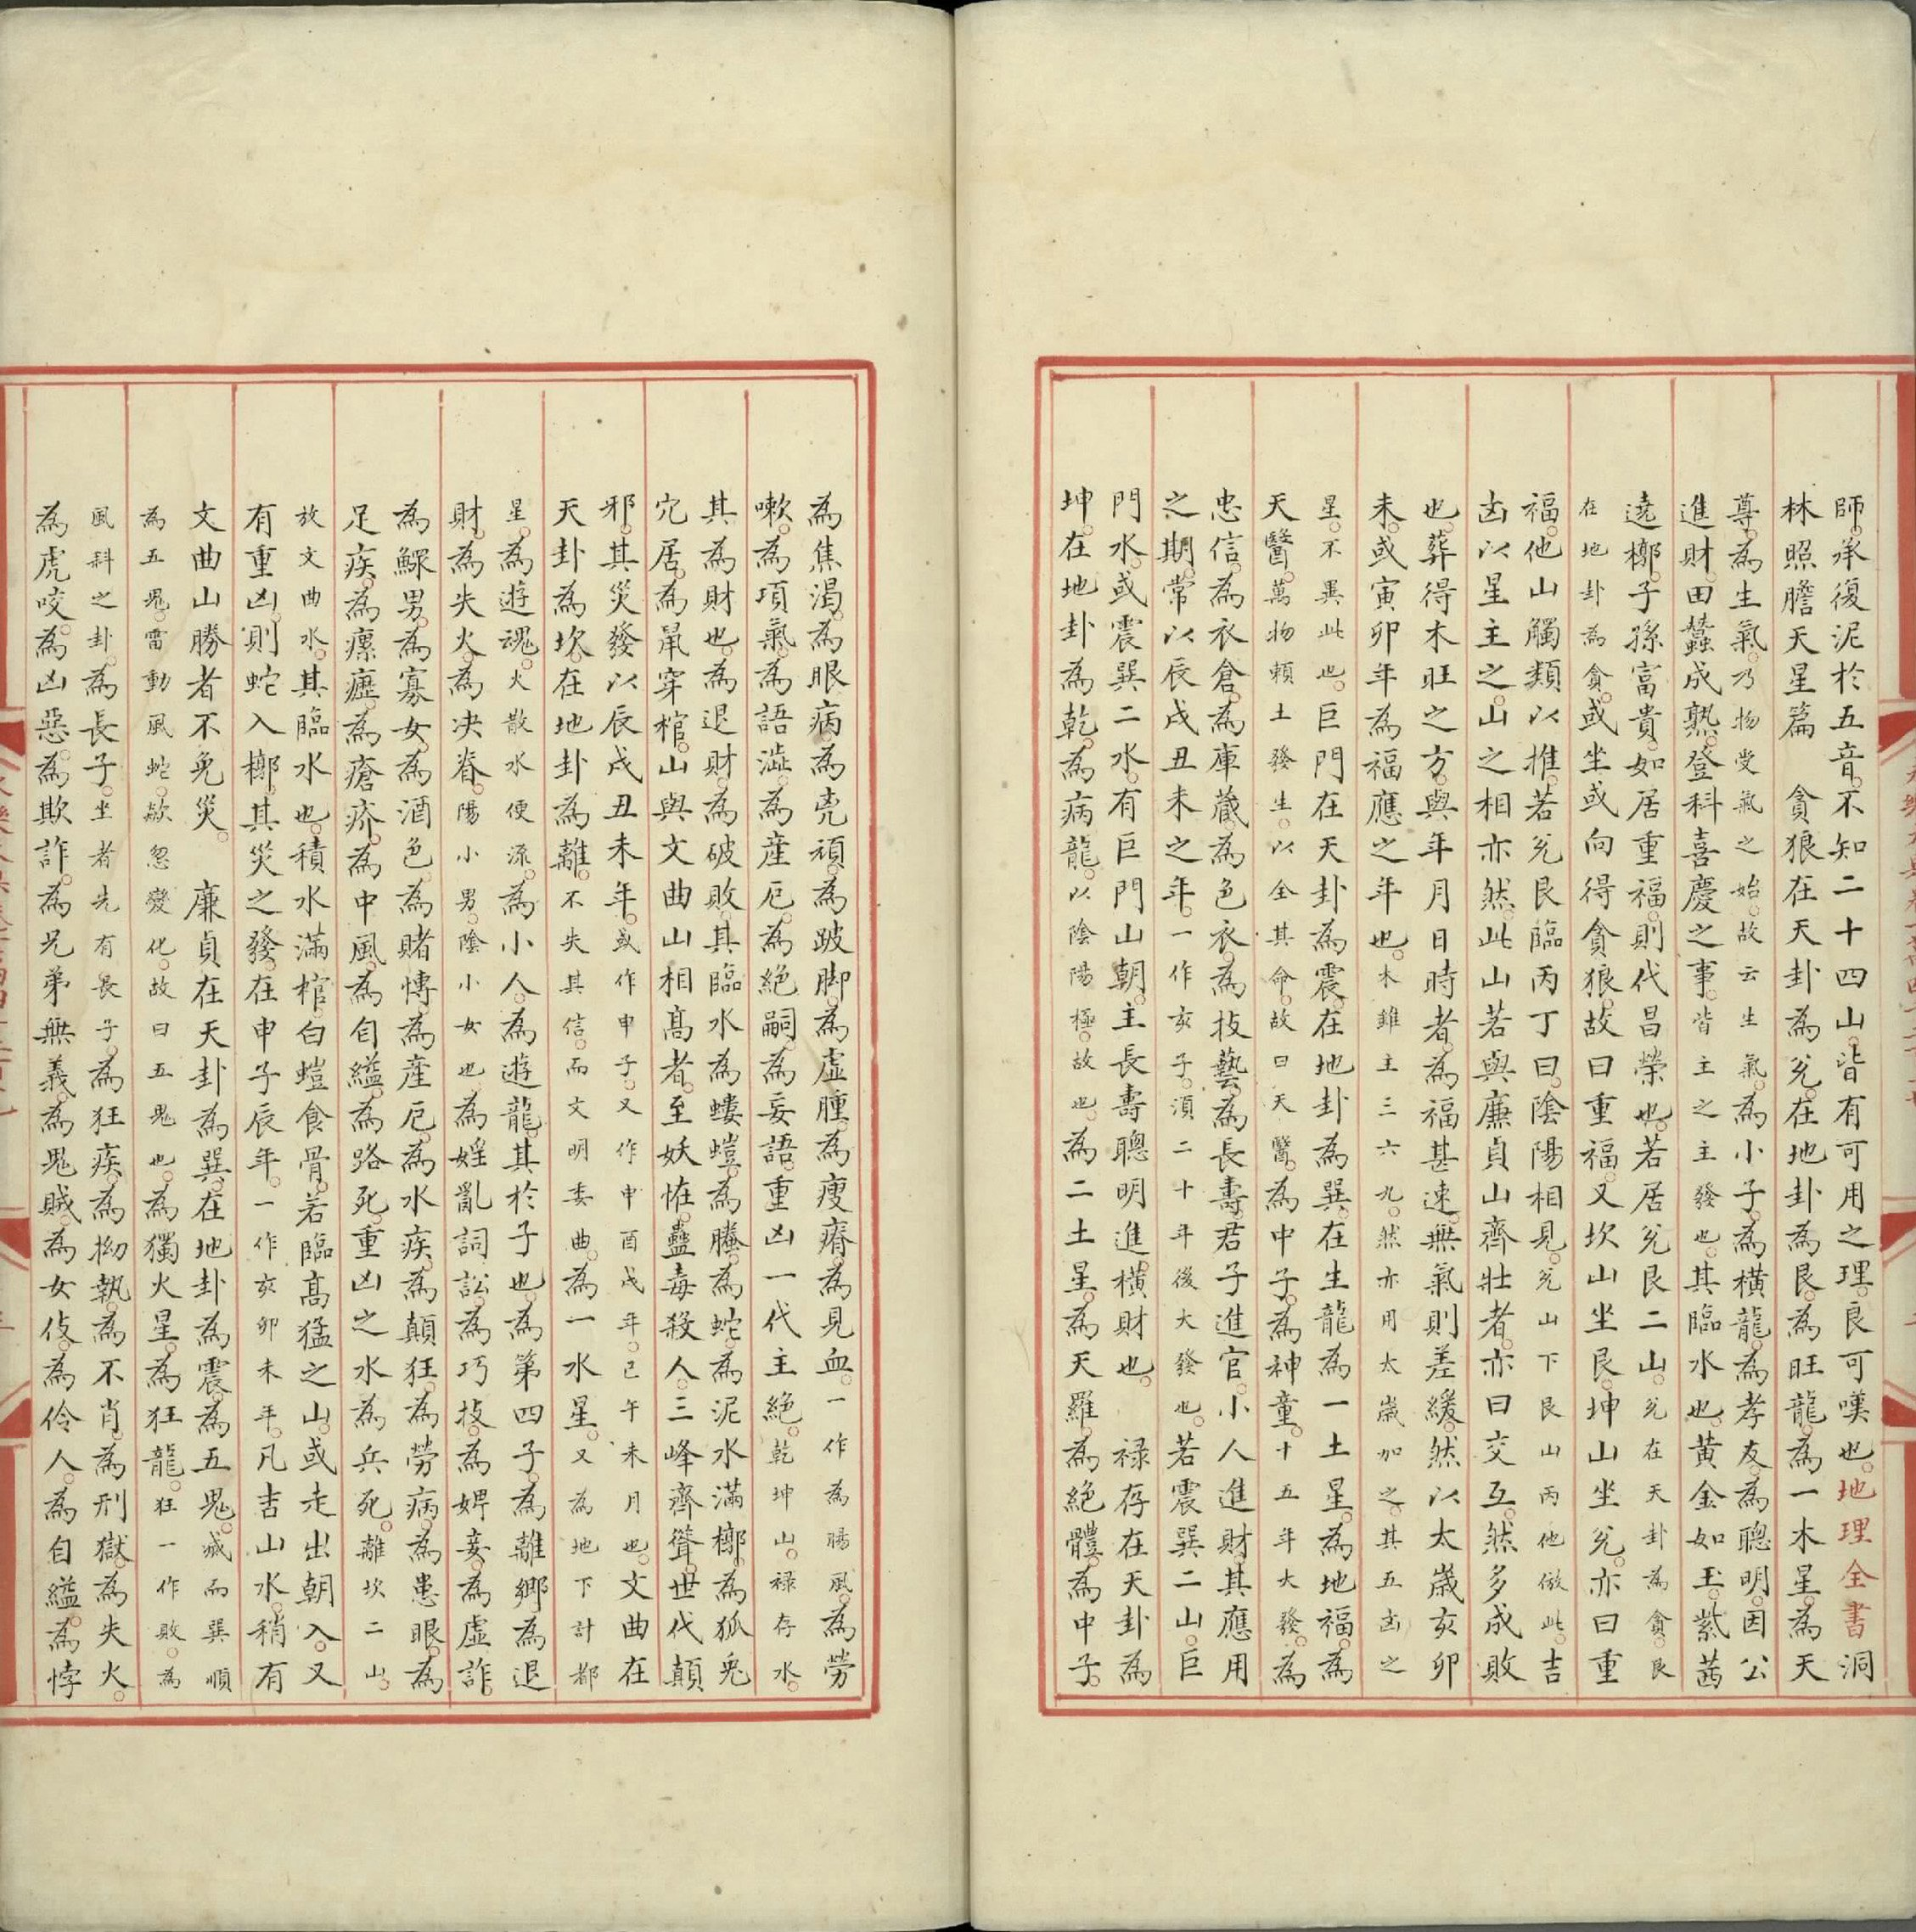 師承復泥於五音不知二十四山皆有可用之理良可嘆也地理全書洞
林照膽天星篇　貪狼在天卦為兌在地卦為艮為旺龍為一木星為天
尊為生氣乃物受氣之始故云生氣為小子為橫龍為孝友為聰明因公
進財田蠶成熟登科喜慶之事皆主之主發也其臨水也黃金如玉紫茜
遶槨子孫富貴如居重福則代昌榮也若居兌艮二山兌在天卦為貪艮
在地卦為貪或坐或向得貪狼故曰重福又坎山坐艮坤山坐兌亦曰重
福他山觸類以推若兌艮臨丙丁曰陰陽相見兌山下艮山丙他倣此吉
凶以星主之山之相亦然此山若與廉貞山齊壯者亦曰交互然多成敗
也葬得木旺之方與年月日時者為福甚速無氣則差緩然以太歲亥卯
未或寅卯年為福應之年也木雖主三六九然亦用太歲加之其五凶之
星不異此也巨門在天卦為震在地卦為巽在生龍為一土星為地福為
天醫萬物賴土發生以全其命故曰天醫為中子為神童十五年大發為
忠信為衣倉為庫藏為色衣為技藝為長壽君子進官小人進財其應用
之期常以辰戌丑未之年一作亥子湏二十年後大發也若震巽二山巨
門水或震巽二水有巨門山朝主長壽聰明進橫財也　祿存在天卦為
坤在地卦為乾為病龍以陰陽極故也為二土星為天羅為絕體為中子
為焦渴為眼病為禿頑為跛脚為虛腫為瘦瘠為見血一作為腸風為勞
嗽為項氣為語澁為產厄為絕嗣為妄語重凶一代主絕乾坤山祿存水
其為財也為退財為破敗其臨水為螻螘為騰為蛇為泥水滿槨為狐兎
穴居為鼠穿棺山與文曲山相髙者至妖恠蠱毒殺人三峰齊聳世代顛
邪其災發以辰戌丑未年或作申子又作申酉戌年已午未月也文曲在
天卦為坎在地卦為離不失其信而文明委曲為一水星又為地下計都
星為遊魂火散水便流為小人為遊龍其於子也為第四子為離鄉為退
財為失火為决眷陽小男陰小女也為婬亂詞訟為巧技為婢妾為虛詐
為鰥男為寡女為酒色為賭愽為產厄為水疾為顛狂為勞病為患眼為
足疾為瘰癧為瘡疥為中風為自縊為路死重凶之水為兵死離坎二山
放文曲水其臨水也積水滿棺白螘食骨若臨髙猛之山或走出朝入又
有重凶則蛇入槨其災之發在申子辰年一作亥卯未年凡吉山水稍有
文曲山勝者不免災　廉貞在天卦為巽在地卦為震為五鬼滅而巽順
為五鬼雷動風蛇歘忽變化故曰五鬼也為獨火星為狂龍狂一作敗為
風科之卦為長子坐者先有長子為狂疾為拗執為不肖為刑獄為失火
為虎咬為凶惡為欺詐為兄弟無義為鬼賊為女伎為伶人為自縊為悖